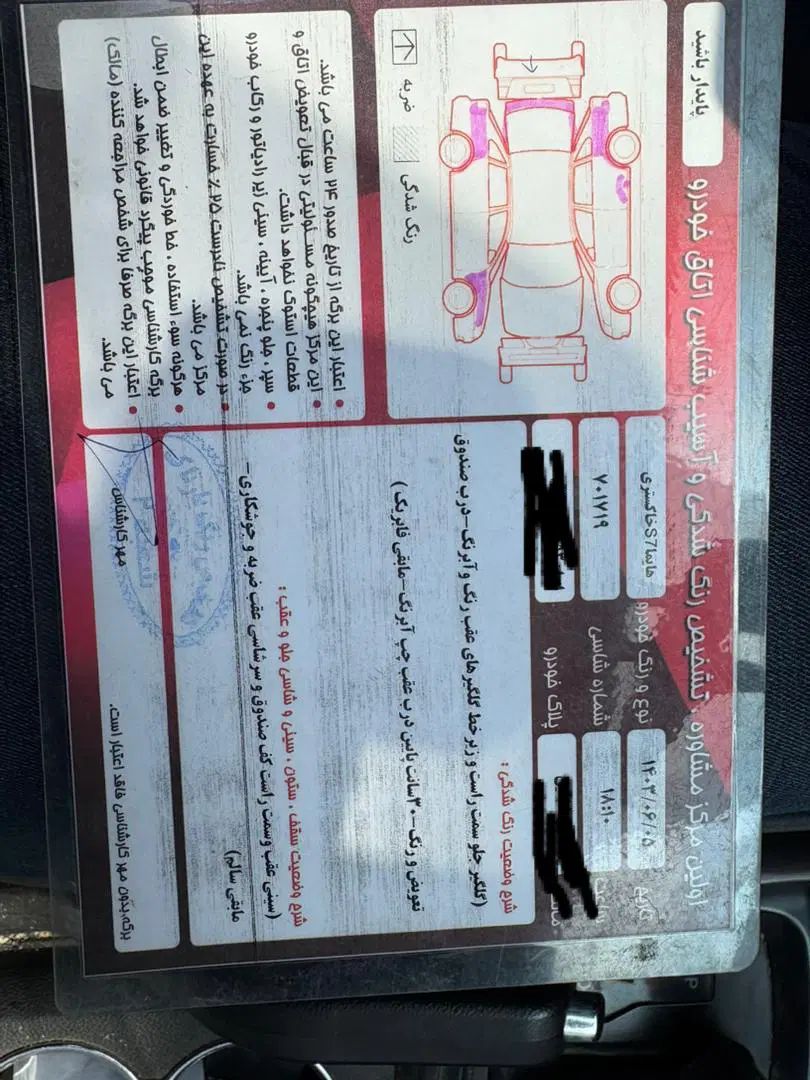 پایدار باشید
اولین مرکز مشاوره ، تشخیص رنگ شدگی و آسیب شناسی اتاق خودرو
تاریخ
۱۴۰۳/۰۶/۰۵
نوع و رنگ خودرو
هایما S7 خاکستری
۱۸:۱۰
شماره شاسی
۷۰۱۷۱۹
پلاک خودرو
ضربه
رنگ شدگی
شرح وضعیت رنگ شدگی :
(گلگیر جلو سمت راست و زیر خط گلگیر های عقب رنگ و آبرنگ-درب صندوق
تعویض و رنگ-۳۰سانت پایین درب عقب چپ آبرنگ-مابقی فابریک )
شرح وضعیت سقف ، ستون ، سینی و شاسی جلو و عقب :
(سینی عقب وسمت راست کف صندوق و سرشاسی عقب ضربه و جوشکاری-
مابقی سالم)
• اعتبار این برگه از تاریخ صدور ۲۴ ساعت می باشد.
• این مرکز هیچگونه مسئولیتی در قبال تعویض اتاق و
قطعات استوک نخواهد داشت.
• سپر ، جلو پنجره ، آیینه ، سینی زیر رادیاتور و رکاب خودرو
جزء رنگ نمی باشد.
• در صورت تشخیص نادرست ۲۵٪ خسارت به عهده این
مرکز می باشد.
• هرگونه سوء استفاده ، خط خوردگی و تغییر ضمن ابطال
برگه کارشناسی موجب پیگرد قانونی خواهد شد.
• اعتبار این برگه صرفا برای شخص مراجعه کننده (مالک)
می باشد.
مهر کارشناس
برگه بدون مهر کارشناسی فاقد اعتبار است.
P